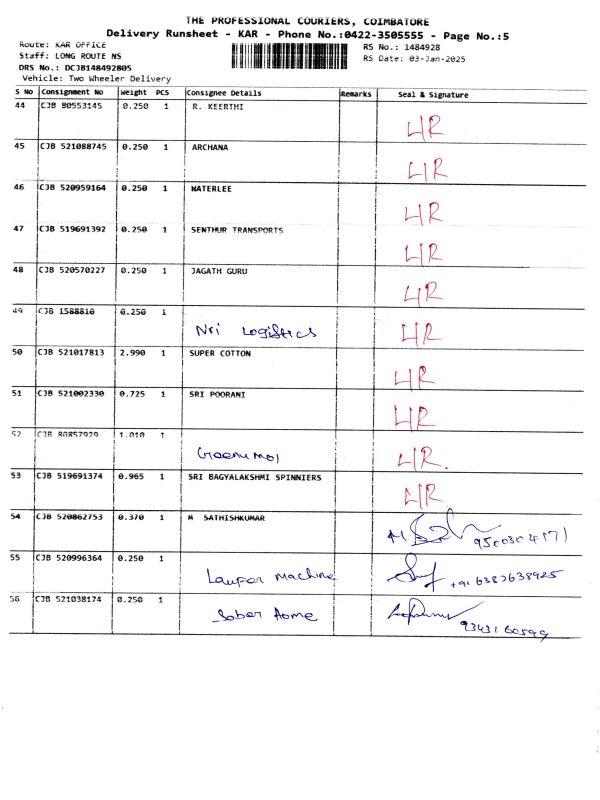 THE PROFESSIONAL COURIERS, COIMBATORE
Delivery Runsheet - KAR - Phone No.:0422-3505555 - Page No.:5
Route: KAR OFFICE
RS No.: 1484928
Staff: LONG ROUTE NS
RS Date: 03-Jan-2025
DRS No.: DCJB148492805
Vehicle: Two Wheeler Delivery
S No Consignment No Weight PCS Consignee Details Remarks Seal & Signature
44 CJB 80553145 0.250 1 R. KEERTHI
L/R
45 CJB 521088745 0.250 1 ARCHANA
L/R
46 CJB 520959164 0.250 1 WATERLEE
L/R
47 CJB 519691392 0.250 1 SENTHUR TRANSPORTS
L/R
48 CJB 520570227 0.250 1 JAGATH GURU
L/R
49 CJB 1588810 0.250 1
Nri Logistics L/R
50 CJB 521017813 2.990 1 SUPER COTTON
L/R
51 CJB 521002330 0.725 1 SRI POORANI
L/R
52 CJB 80857929 1.010 1
L/R.
53 CJB 519691374 0.965 1 SRI BAGYALAKSHMI SPINNIERS
L/R
54 CJB 520862753 0.370 1 M SATHISHKUMAR
55 CJB 520996364 0.250 1
Machine +91 6382638925
56 CJB 521038174 0.250 1
Sober Home